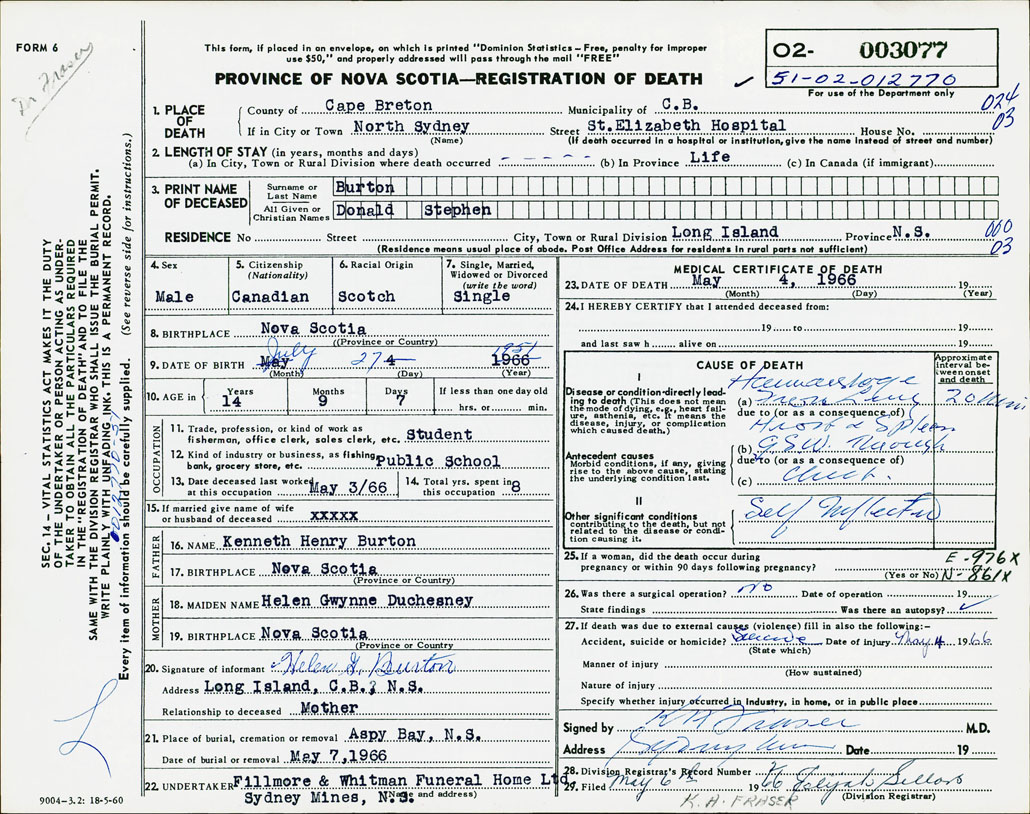 FORM 6
Dr Fraser
This form, if placed in an envelope, on which is printed "Dominion Statistics – Free, penalty for improper
use $50," and properly addressed will pass through the mail "FREE"
PROVINCE OF NOVA SCOTIA—REGISTRATION OF DEATH
02- 003077
51-02-012770
For use of the Department only
024
03
1. PLACE OF DEATH
County of Cape Breton Municipality of C.B.
If in City or Town North Sydney Street St.Elizabeth Hospital House No.
(Name) (If death occurred in a hospital or institution, give the name instead of street and number)
2. LENGTH OF STAY (in years, months and days)
(a) In City, Town or Rural Division where death occurred - - - - - (b) In Province Life (c) In Canada (if immigrant)
3. PRINT NAME OF DECEASED
Surname or Last Name Burton
All Given or Christian Names Donald Stephen
000
03
RESIDENCE No Street City, Town or Rural Division Long Island Province N.S.
(Residence means usual place of abode. Post Office Address for residents in rural parts not sufficient)
4. Sex Male
5. Citizenship (Nationality) Canadian
6. Racial Origin Scotch
7. Single, Married, Widowed or Divorced (write the word) Single
8. BIRTHPLACE Nova Scotia
(Province or Country)
9. DATE OF BIRTH May July 27 4 1966 1951
(Month) (Day) (Year)
10. AGE in Years 14 Months 9 Days 7 If less than one day old hrs. or min.
OCCUPATION
11. Trade, profession, or kind of work as
fisherman, office clerk, sales clerk, etc. Student
12. Kind of industry or business, as fishing,
bank, grocery store, etc. Public School
13. Date deceased last worked at this occupation May 3/66
14. Total yrs. spent in this occupation 8
15. If married give name of wife
or husband of deceased xxxxx
FATHER
16. NAME Kenneth Henry Burton
17. BIRTHPLACE Nova Scotia
(Province or Country)
MOTHER
18. MAIDEN NAME Helen Gwynne Duchesney
19. BIRTHPLACE Nova Scotia
(Province or Country)
20. Signature of informant Helen G. Burton
Address Long Island, C.B., N.S.
Relationship to deceased Mother
21. Place of burial, cremation or removal Aspy Bay, N.S.
Date of burial or removal May 7,1966
22. UNDERTAKER Fillmore & Whitman Funeral Home Ltd.
Sydney Mines, N.S.
(Name and address)
MEDICAL CERTIFICATE OF DEATH
23. DATE OF DEATH May 4, 1966 19
(Month) (Day) (Year)
24. I HEREBY CERTIFY that I attended deceased from:
19 to 19
and last saw h alive on 19
CAUSE OF DEATH
Approximate interval between onset and death
I
Disease or condition directly leading to death (This does not mean the mode of dying, e.g., heart failure, asthenia, etc. It means the disease, injury, or complication which caused death.)
(a) Haemorrhage from Lung 20 min
due to (or as a consequence of)
Heart & Spleen
Antecedent causes
Morbid conditions, if any, giving rise to the above cause, stating the underlying condition last.
(b) G.S.W. through
due to (or as a consequence of)
(c) Chest.
II
Other significant conditions
contributing to the death, but not related to the disease or condition causing it.
Self Inflicted
25. If a woman, did the death occur during
pregnancy or within 90 days following pregnancy?
(Yes or No)
E-976X
N-861X
26. Was there a surgical operation? no Date of operation 19
State findings Was there an autopsy? ✓
27. If death was due to external causes (violence) fill in also the following:-
Accident, suicide or homicide? Suicide Date of injury May 4 1966
(State which)
Manner of injury
(How sustained)
Nature of injury
Specify whether injury occurred in Industry, in home, or in public place
Signed by K A Fraser M.D.
Address Sydney Mines Date 19
28. Division Registrar's Record Number
29. Filed May 6th 1966
(Division Registrar)
K. A. FRASER
SEC. 14 – VITAL STATISTICS ACT MAKES IT THE DUTY
OF THE UNDERTAKER OR PERSON ACTING AS UNDER-
TAKER TO OBTAIN ALL THE PARTICULARS REQUIRED
IN THE "REGISTRATION OF DEATH" AND TO FILE THE
SAME WITH THE DIVISION REGISTRAR WHO SHALL ISSUE THE BURIAL PERMIT.
WRITE PLAINLY WITH UNFADING INK. THIS IS A PERMANENT RECORD.
Every item of information should be carefully supplied. (See reverse side for instructions.)
9004-3.2: 18-5-60